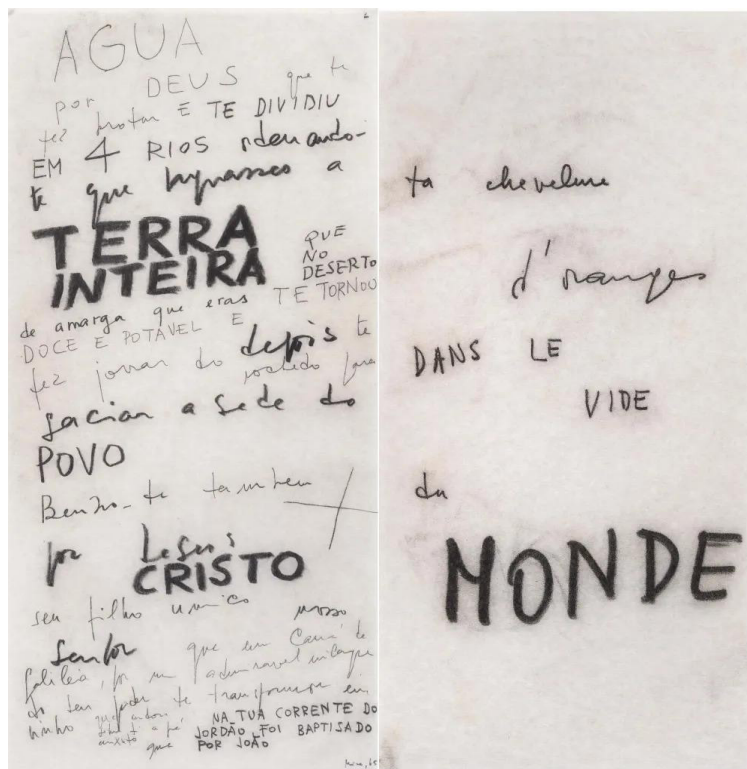 AGUA
por DEUS que te
fez brotar E TE DIVIDIU
EM 4 RIOS ordenando-
te que
a
TERRA
INTEIRA
QUE
NO
DESERTO
de amarga que eras TE TORNOU
DOCE E POTAVEL E
depois te
fez jorrar do rochedo para
saciar a sede do
POVO
Benzo-te tambem
por Jesus
CRISTO
seu filho unico nosso
Senhor que em Caná de
Galileia, por um admiravel milagre
do seu poder te transformou em
vinho que andou
a pé
NA TUA CORRENTE DO
JORDÃO FOI BAPTISADO
que POR JOÃO
ta chevelure
d'oranges
DANS LE
VIDE
du
MONDE